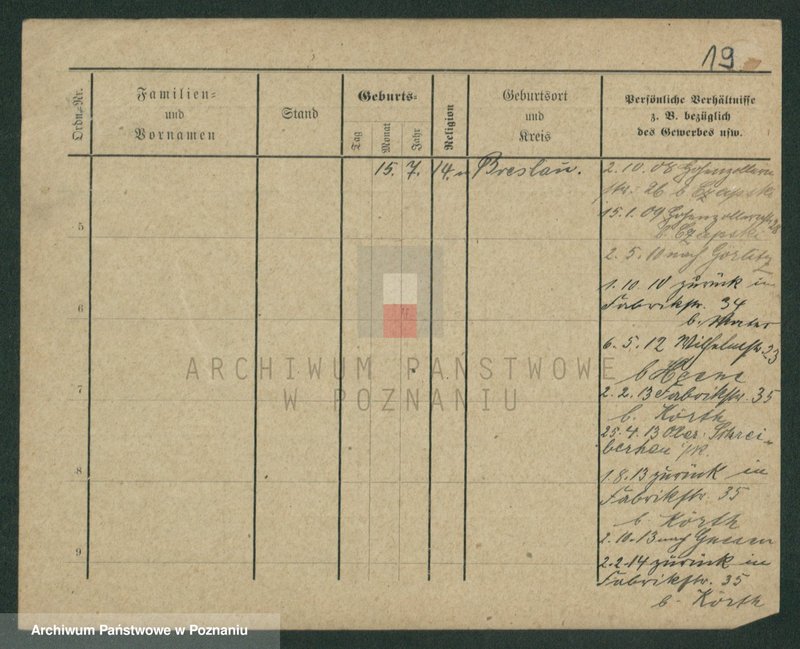 19
Ordn.-Nr.
Familien=
und
Vornamen
Stand
Geburts=
Tag
Monat
Jahr
Religion
Geburtsort
und
Kreis
Persönliche Verhältnisse
z. B. bezüglich
des Gewerbes usw.
15. 7. 14. Breslau.
2. 10. 08 Hohenzollern
str. 26 b Czapski
15. 1. 09 Hohenzollernstr 28
b. Czapski
5
2. 5. 10 nach Görlitz
1. 10. 10 zurück in
Fabrikstr. 34
6
b.
6. 5. 12 Wilhelmstr 23
b
7
2. 2. 13 Fabrikstr. 35
b. Körth
25. 4. 13 Ober Schrei-
berhau
8
1. 8. 13 zurück in
Fabrikstr. 35
b Körth
2. 10. 13 nach Gnesen
9
2. 2. 14 zurück in
Fabrikstr. 35
b. Körth
ARCHIWUM PAŃSTWOWE
W POZNANIU
Archiwum Państwowe w Poznaniu